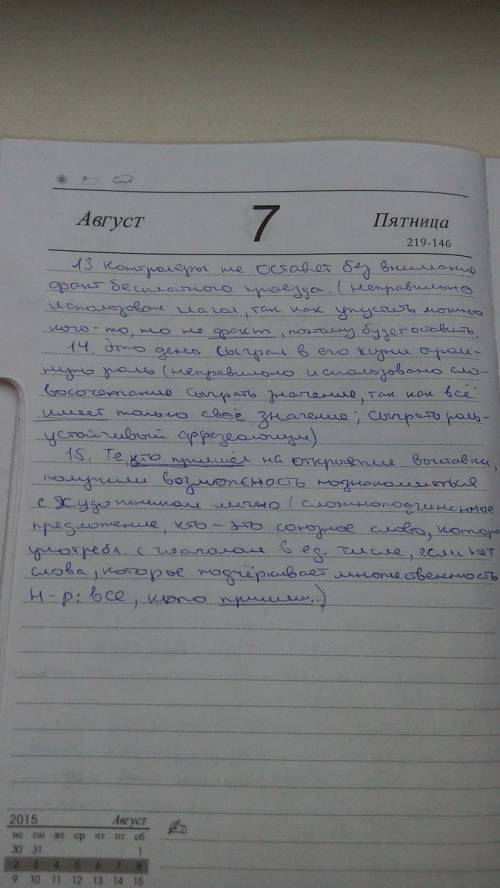 Август 7 Пятница
219-146
13. Контролеры не оставят без внимания
факт бесплатного проезда (неправильно
использован глагол, так как упустить можно
кого-то, но не факт, поэтому будет оставить.
14. Это день сыграл в его жизни огром-
ную роль (неправильно использовано сло-
восочетание сыграть значение, так как всё
имеет только своё значение; сыграть роль-
устойчивый фразеологизм)
15. Те, кто пришёл на открытие выставки,
получили возможность познакомиться
с художником лично (сложноподчиненное
предложение, кто - это союзное слово, котор
употребл. с глаголом в ед. числе, если нет
слова, которое подчёркивает множественность
Н-р: все, кто пришли..)
2015 Август
вс пн вт ср чт пт сб
30 31 1
2 3 4 5 6 7 8
9 10 11 12 13 14 15